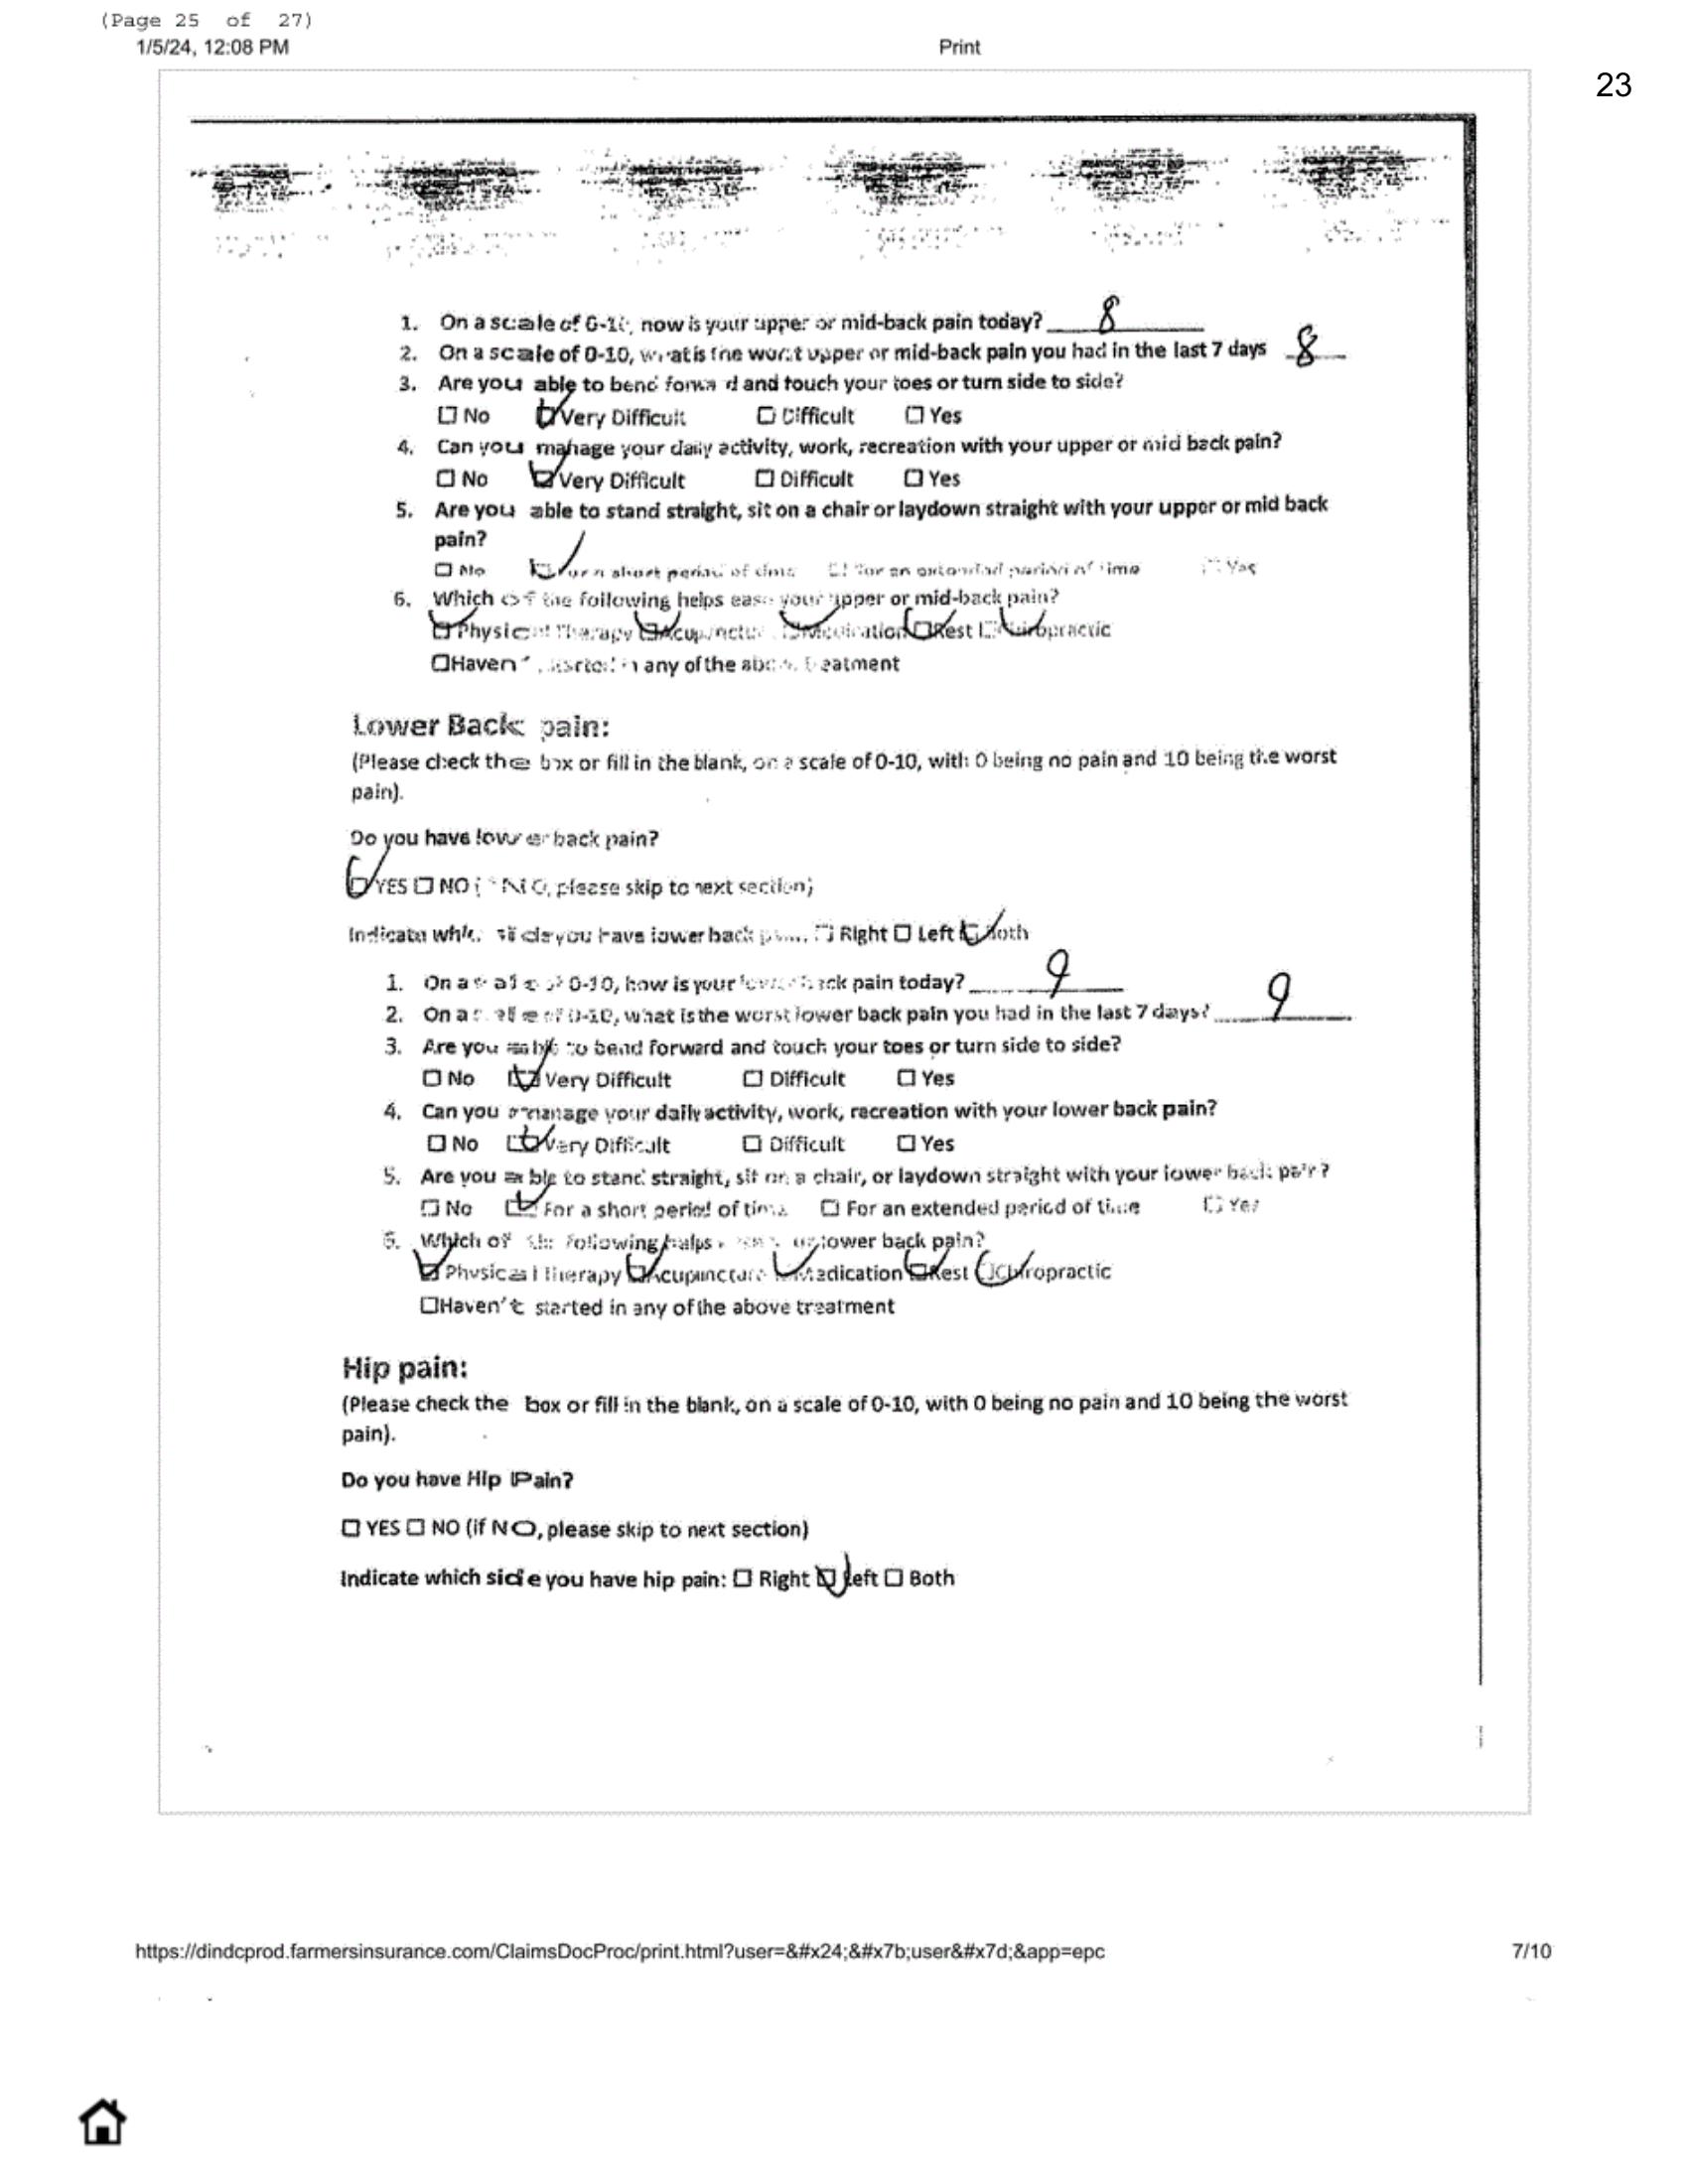 (Page 25 of 27)
1/5/24, 12:08 PM Print
23
1. On a scale of 0-10, how is your upper or mid-back pain today? 8
2. On a scale of 0-10, what is the worst upper or mid-back pain you had in the last 7 days 8
3. Are you able to bend forward and touch your toes or turn side to side?
☐ No ☑ Very Difficult ☐ Difficult ☐ Yes
4. Can you manage your daily activity, work, recreation with your upper or mid back pain?
☐ No ☑ Very Difficult ☐ Difficult ☐ Yes
5. Are you able to stand straight, sit on a chair or laydown straight with your upper or mid back
pain?
☐ No ☑ For a short period of time ☐ for an extended period of time ☐ Yes
6. Which of the following helps ease your upper or mid-back pain?
☑ Physical Therapy ☑ Acupuncture ☑ Medication ☑ Rest ☑ Chiropractic
☐ Haven't started in any of the above treatment
Lower Back pain:
(Please check the box or fill in the blank, on a scale of 0-10, with 0 being no pain and 10 being the worst
pain).
Do you have lower back pain?
☑ YES ☐ NO (if NO, please skip to next section)
Indicate which side you have lower back pain: ☐ Right ☐ Left ☑ Both
1. On a scale of 0-10, how is your lower back pain today? 9
2. On a scale of 0-10, what is the worst lower back pain you had in the last 7 days? 9
3. Are you able to bend forward and touch your toes or turn side to side?
☐ No ☑ Very Difficult ☐ Difficult ☐ Yes
4. Can you manage your daily activity, work, recreation with your lower back pain?
☐ No ☑ Very Difficult ☐ Difficult ☐ Yes
5. Are you able to stand straight, sit on a chair, or laydown straight with your lower back pain?
☐ No ☑ For a short period of time ☐ For an extended period of time ☐ Yes
6. Which of the following helps ease your lower back pain?
☑ Physical Therapy ☑ Acupuncture ☑ Medication ☑ Rest ☑ Chiropractic
☐ Haven't started in any of the above treatment
Hip pain:
(Please check the box or fill in the blank, on a scale of 0-10, with 0 being no pain and 10 being the worst
pain).
Do you have Hip Pain?
☐ YES ☐ NO (if NO, please skip to next section)
Indicate which side you have hip pain: ☐ Right ☑ Left ☐ Both
https://dindcprod.farmersinsurance.com/ClaimsDocProc/print.html?user=&#x24;&#x7b;user&#x7d;&app=epc 7/10